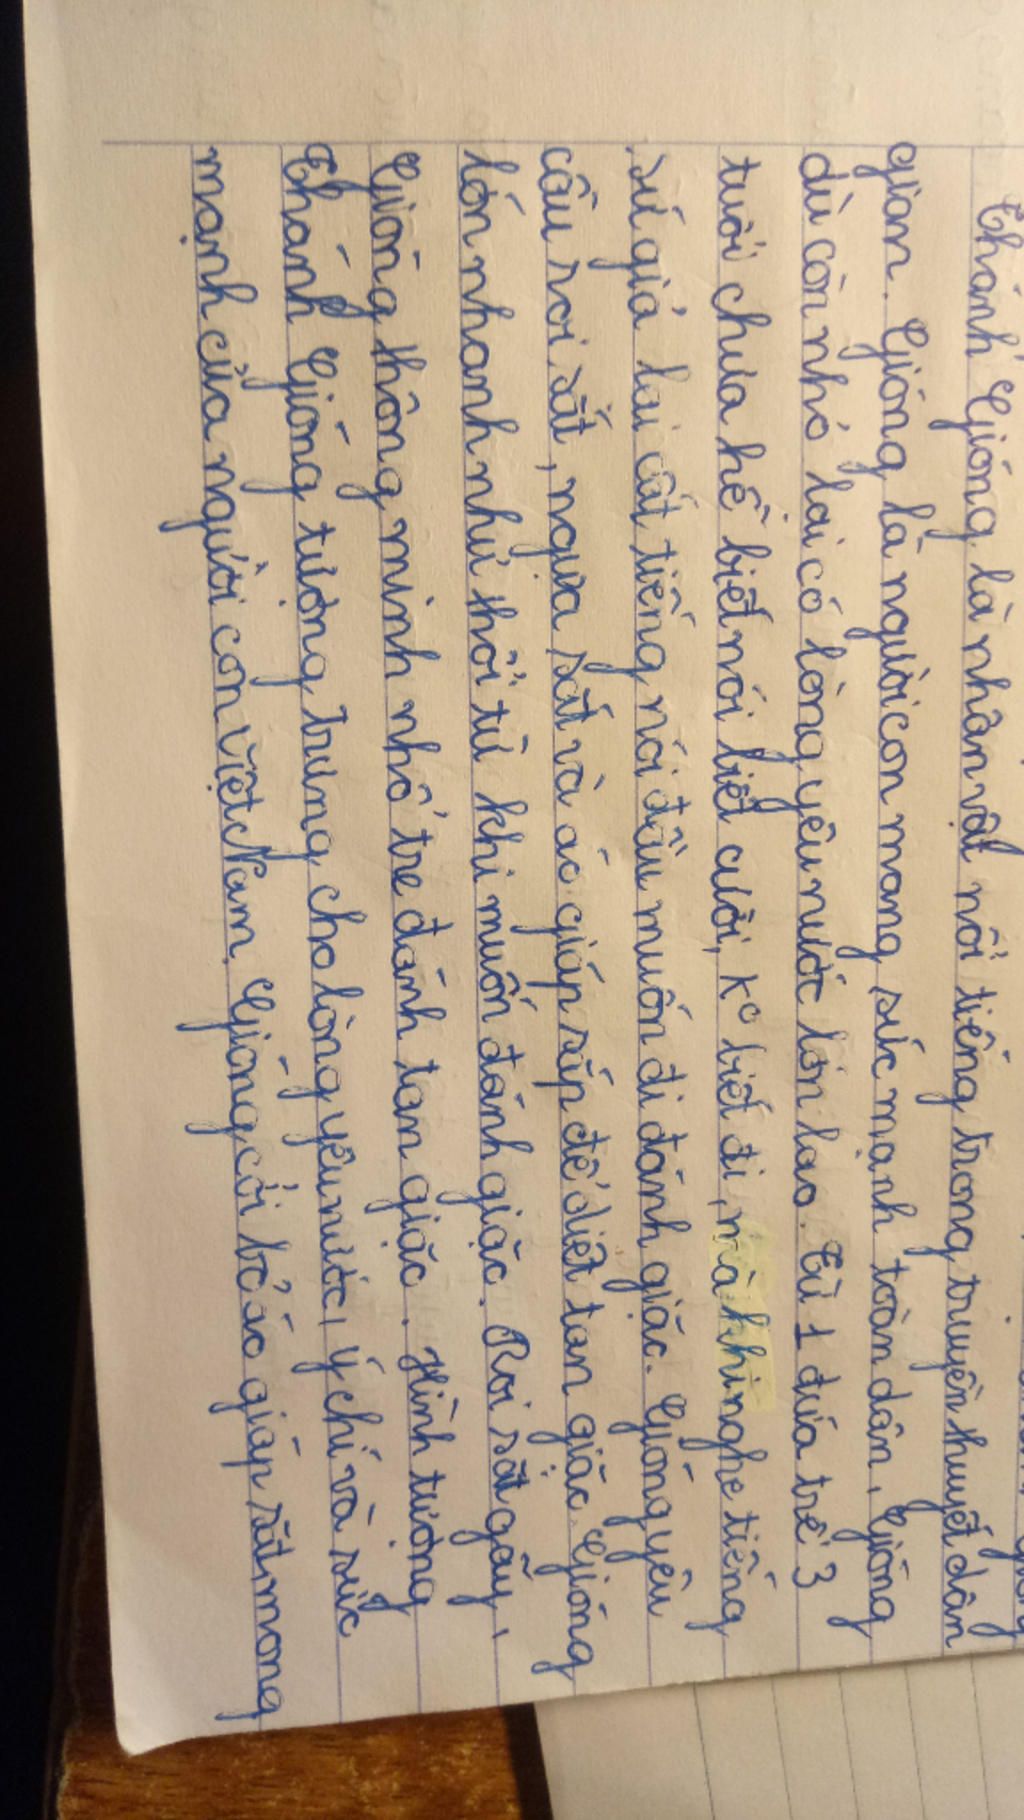 Thánh Gióng là nhân vật nổi tiếng trong truyền thuyết dân
gian. Gióng là người con mang sức mạnh toàn dân, Gióng
dù còn nhỏ lại có lòng yêu nước lớn lao. Từ 1 đứa trẻ 3
tuổi chưa hề biết nói biết cười, kº biết đi, mà khi nghe tiếng
sứ giả lại cất tiếng nói đầu muốn đi đánh giặc. Gióng yêu
cầu roi sắt, ngựa sắt và áo giáp sắp để diệt tan giặc. Gióng
lớn nhanh như thổi từ khi muốn đánh giặc. Roi sắt gãy,
Gióng thông minh nhổ tre đánh tan giặc. Hình tượng
Thánh Gióng tượng trưng cho lòng yêu nước, ý chí và sức
mạnh của người con Việt Nam. Gióng cởi bỏ áo giáp sắt mong